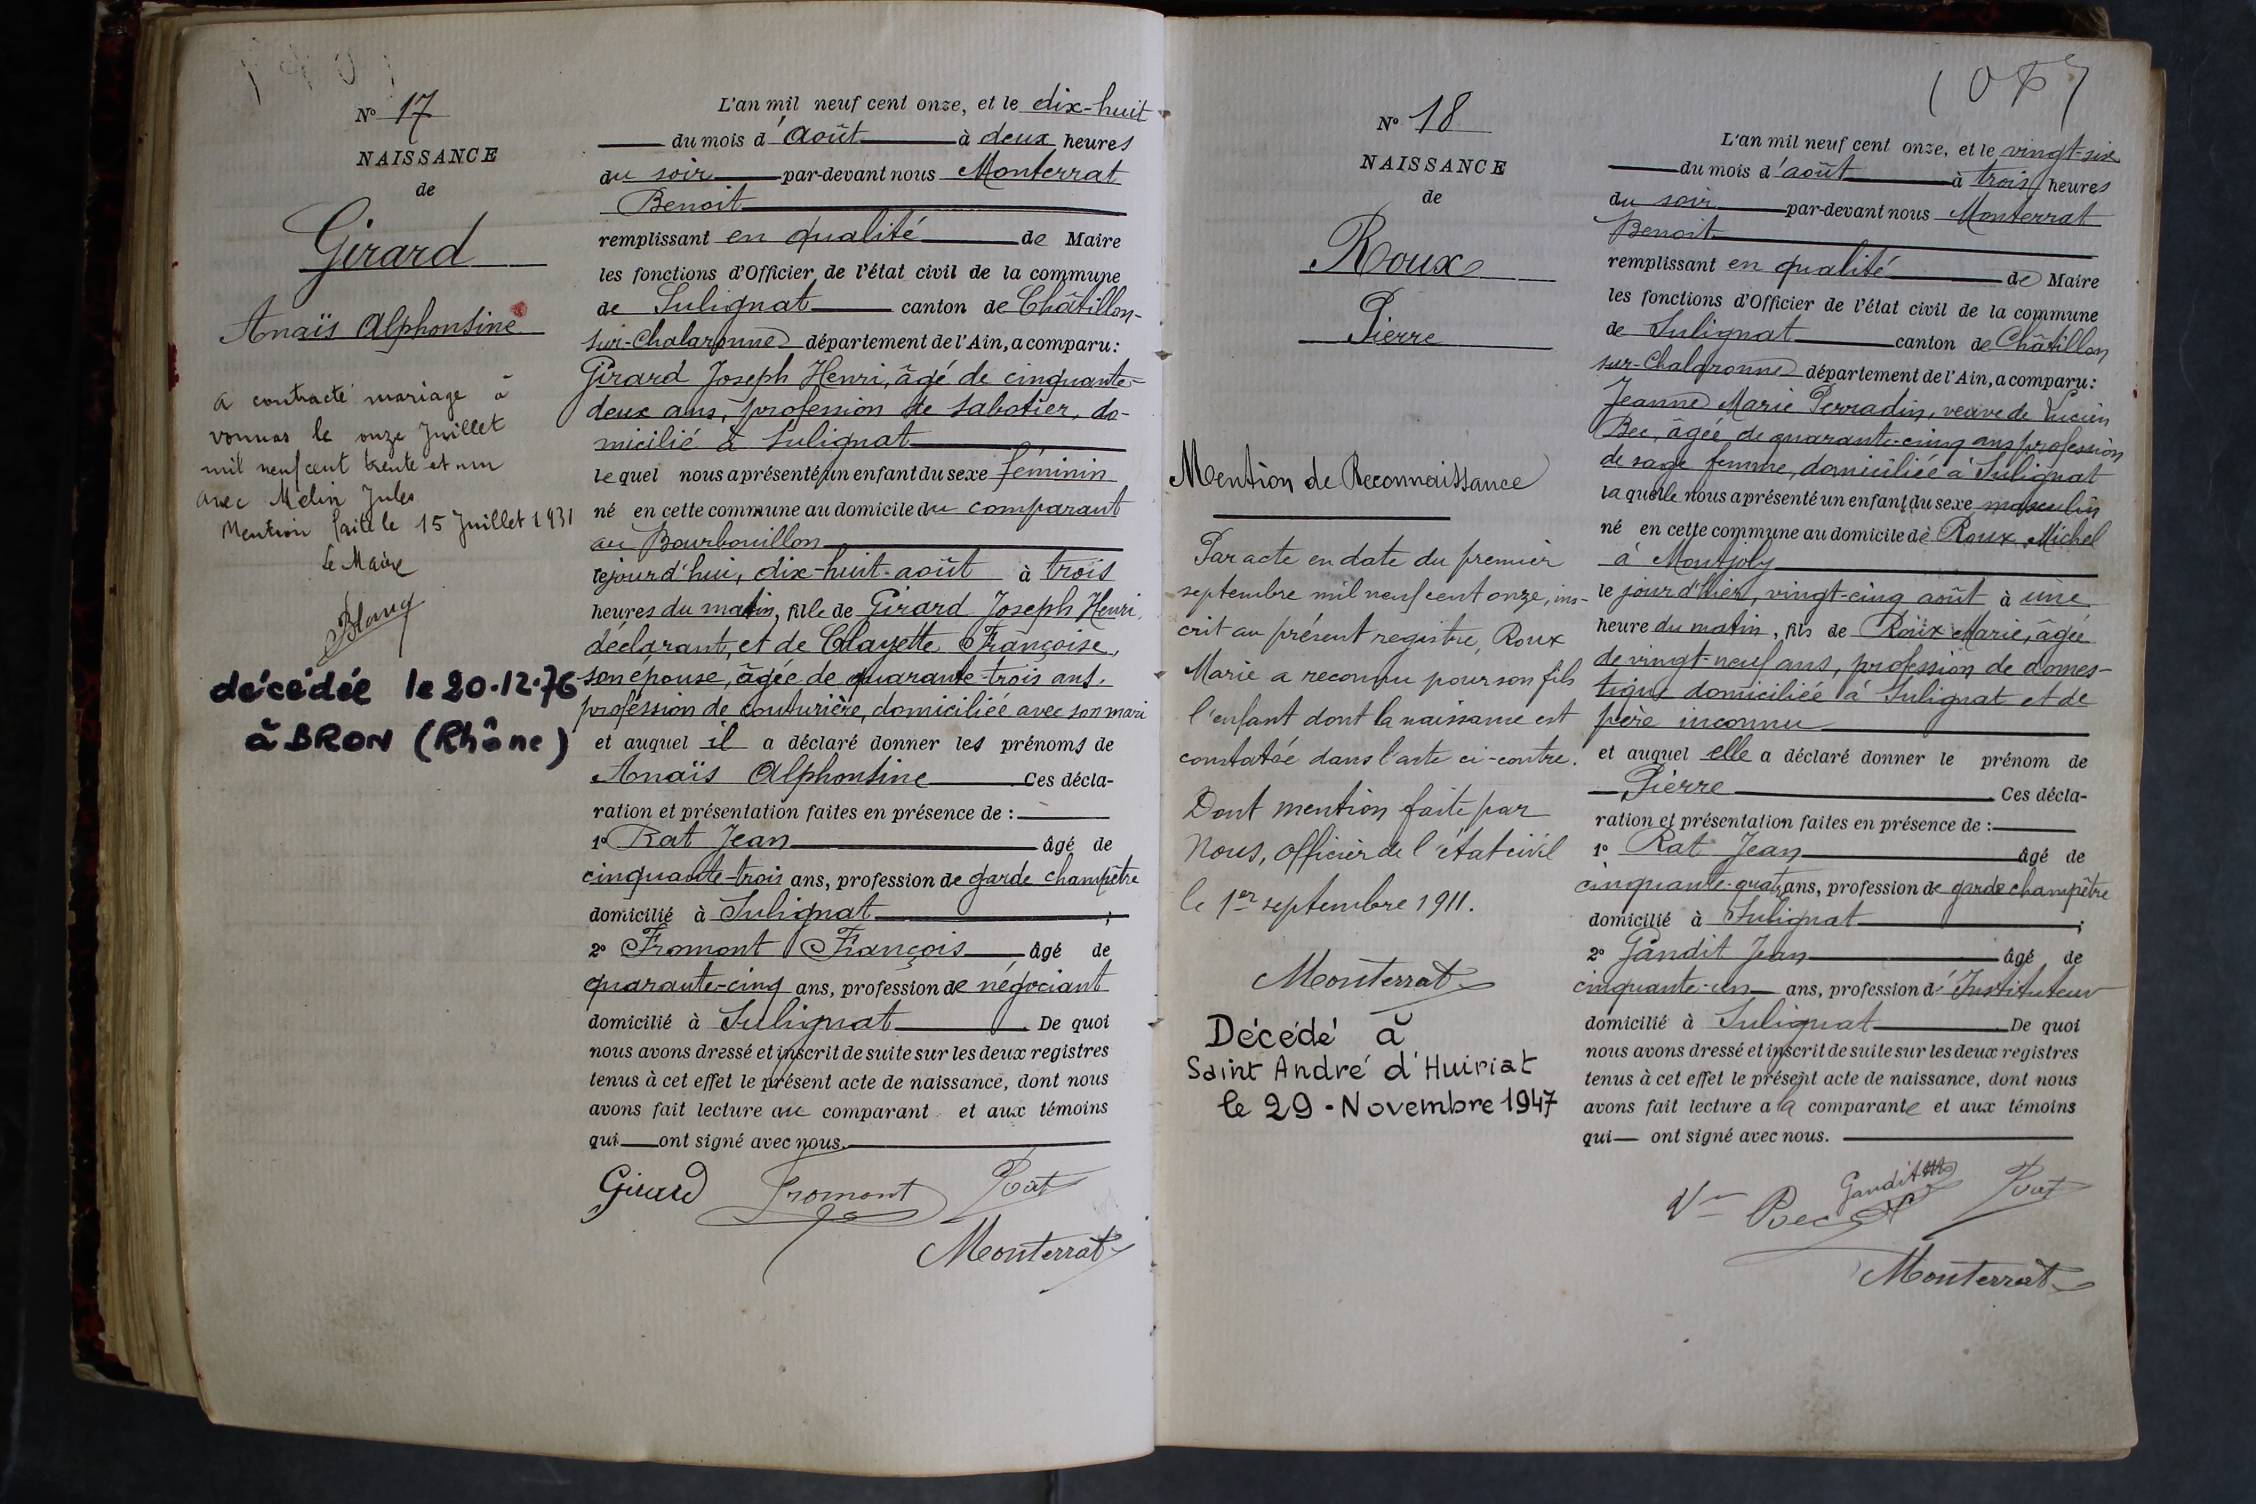 N° 17
NAISSANCE
de
Girard
Anaïs Alphonsine
a contracté mariage à
vonnas le onze Juillet
mil neuf cent trente et un
avec Melin Jules
Mention faite le 15 Juillet 1931
Le Maire
décédée le 20.12.76
à BRON (Rhône)
L'an mil neuf cent onze, et le dix-huit
du mois d'août à deux heures
du soir par-devant nous Monterrat
Benoit
remplissant en qualité de Maire
les fonctions d'Officier de l'état civil de la commune
de Sulignat canton de Châtillon-
sur-Chalaronne département de l'Ain, a comparu :
Girard Joseph Henri, âgé de cinquante-
deux ans, profession de sabotier, do-
micilié à Sulignat
lequel nous a présenté un enfant du sexe féminin
né en cette commune au domicile du comparant
au Bourbouillon
lejourd'hui, dix-huit août à trois
heures du matin, fille de Girard Joseph Henri,
déclarant, et de Clayette Françoise,
son épouse, âgée de quarante-trois ans,
profession de couturière, domiciliée avec son mari
et auquel il a déclaré donner les prénoms de
Anaïs Alphonsine Ces décla-
ration et présentation faites en présence de :
1° Rat Jean âgé de
cinquante-trois ans, profession de garde champêtre
domicilié à Sulignat ;
2° Fromont François âgé de
quarante-cinq ans, profession de négociant
domicilié à Sulignat De quoi
nous avons dressé et inscrit de suite sur les deux registres
tenus à cet effet le présent acte de naissance, dont nous
avons fait lecture au comparant et aux témoins
qui ont signé avec nous.
Girard Fromont Rat
Monterrat
1067
N° 18
NAISSANCE
de
Roux
Pierre
Mention de Reconnaissance
Par acte en date du premier
septembre mil neuf cent onze, ins-
crit au présent registre, Roux
Marie a reconnu pour son fils
l'enfant dont la naissance est
constatée dans l'acte ci-contre.
Dont mention faite par
Nous, officier de l'état civil
le 1er septembre 1911.
Monterrat
Décédé à
Saint André d'Huiriat
le 29 - Novembre 1947
L'an mil neuf cent onze, et le vingt-six
du mois d'août à trois heures
du soir par-devant nous Monterrat
Benoit
remplissant en qualité de Maire
les fonctions d'Officier de l'état civil de la commune
de Sulignat canton de Châtillon
sur-Chalaronne département de l'Ain, a comparu :
Jeanne Marie Perradin, veuve de Lucien
Bec, âgée de quarante-cinq ans profession
de sage femme, domiciliée à Sulignat
laquelle nous a présenté un enfant du sexe masculin
né en cette commune au domicile de Roux Michel
à Montjoly
le jour d'hier, vingt-cinq août à une
heure du matin, fils de Roux Marie, âgée
de vingt-neuf ans, profession de domes-
tique domiciliée à Sulignat et de
père inconnu
et auquel elle a déclaré donner le prénom de
Pierre Ces décla-
ration et présentation faites en présence de :
1° Rat Jean âgé de
cinquante-quatre ans, profession de garde champêtre
domicilié à Sulignat ;
2° Gandit Jean âgé de
cinquante-un ans, profession d'Instituteur
domicilié à Sulignat De quoi
nous avons dressé et inscrit de suite sur les deux registres
tenus à cet effet le présent acte de naissance, dont nous
avons fait lecture a la comparante et aux témoins
qui ont signé avec nous.
Vve Bec Gandit Rat
Monterrat